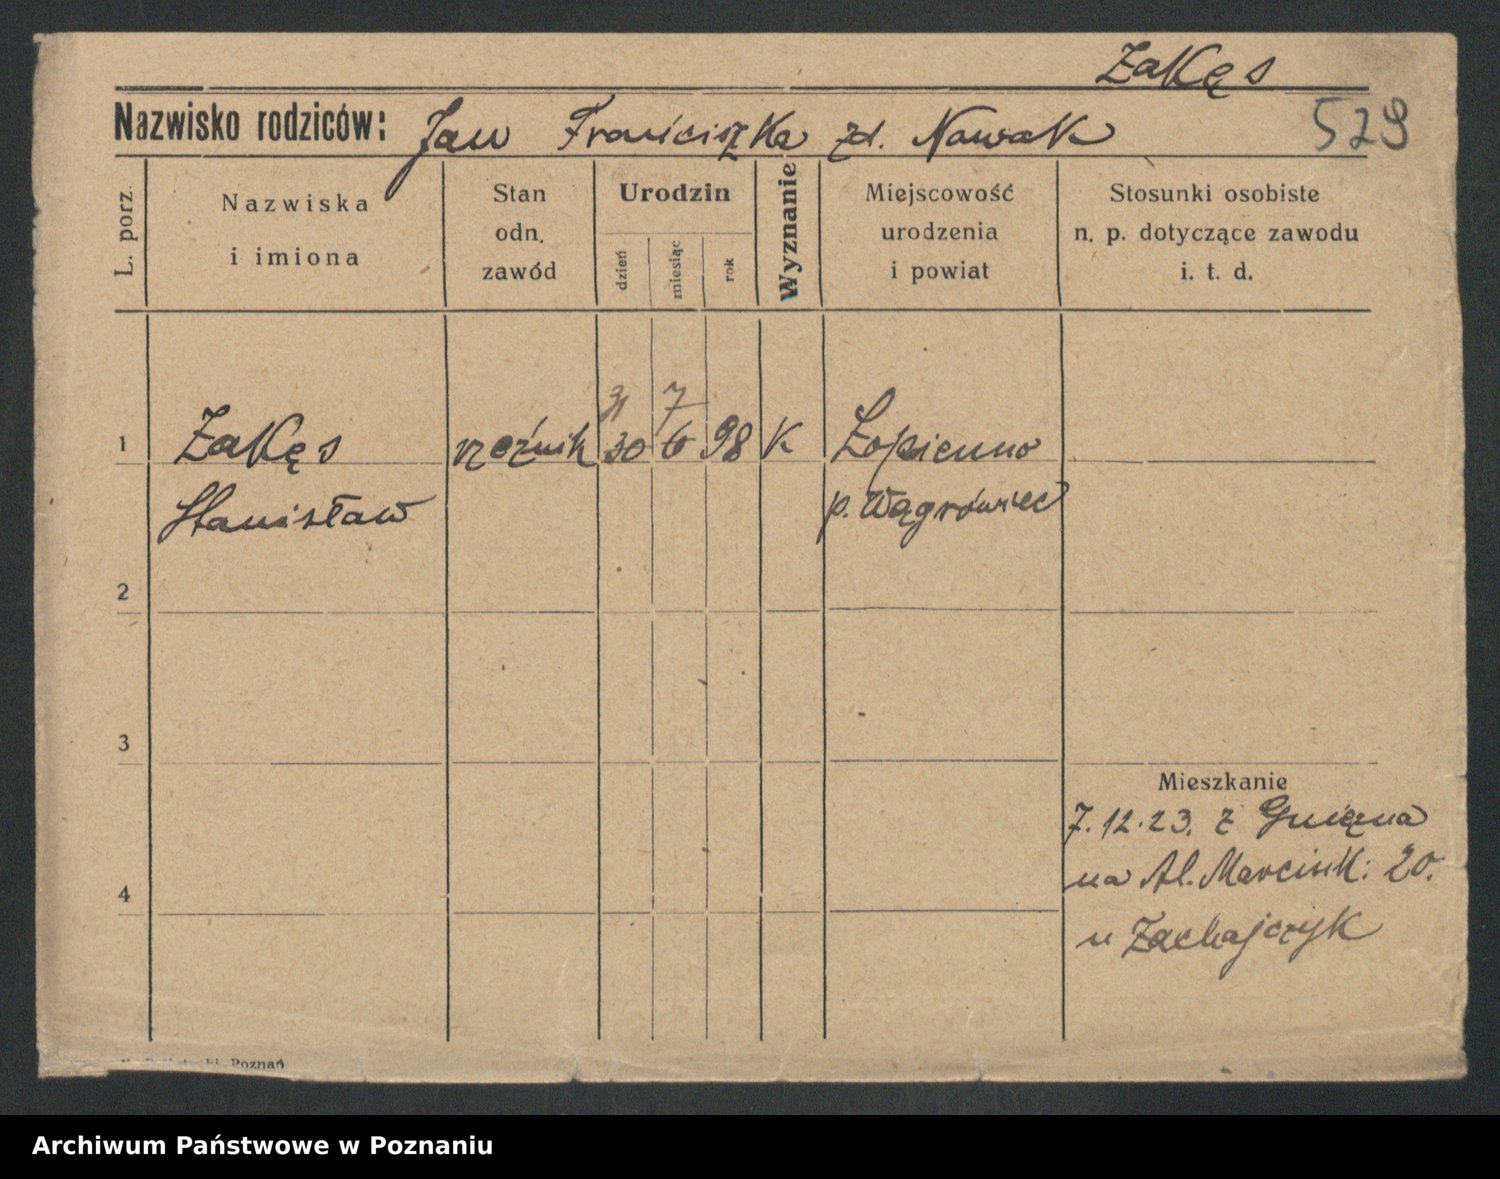 Zakęs
Nazwisko rodziców: Jan Franciszka zd. Nowak
529
L. porz.
Nazwiska
i imiona
Stan
odn.
zawód
Urodzin
dzień
miesiąc
rok
Wyznanie
Miejscowość
urodzenia
i powiat
Stosunki osobiste
n. p. dotyczące zawodu
i. t. d.
31 7
1 Zakęs rzeźnik 30 6 98 K Łopienno
Stanisław p. Wągrówiec
2
3
Mieszkanie
7.12.23. z Gniezna
na Al. Marcink: 20.
4
u Zachajczyk
Poznań
Archiwum Państwowe w Poznaniu